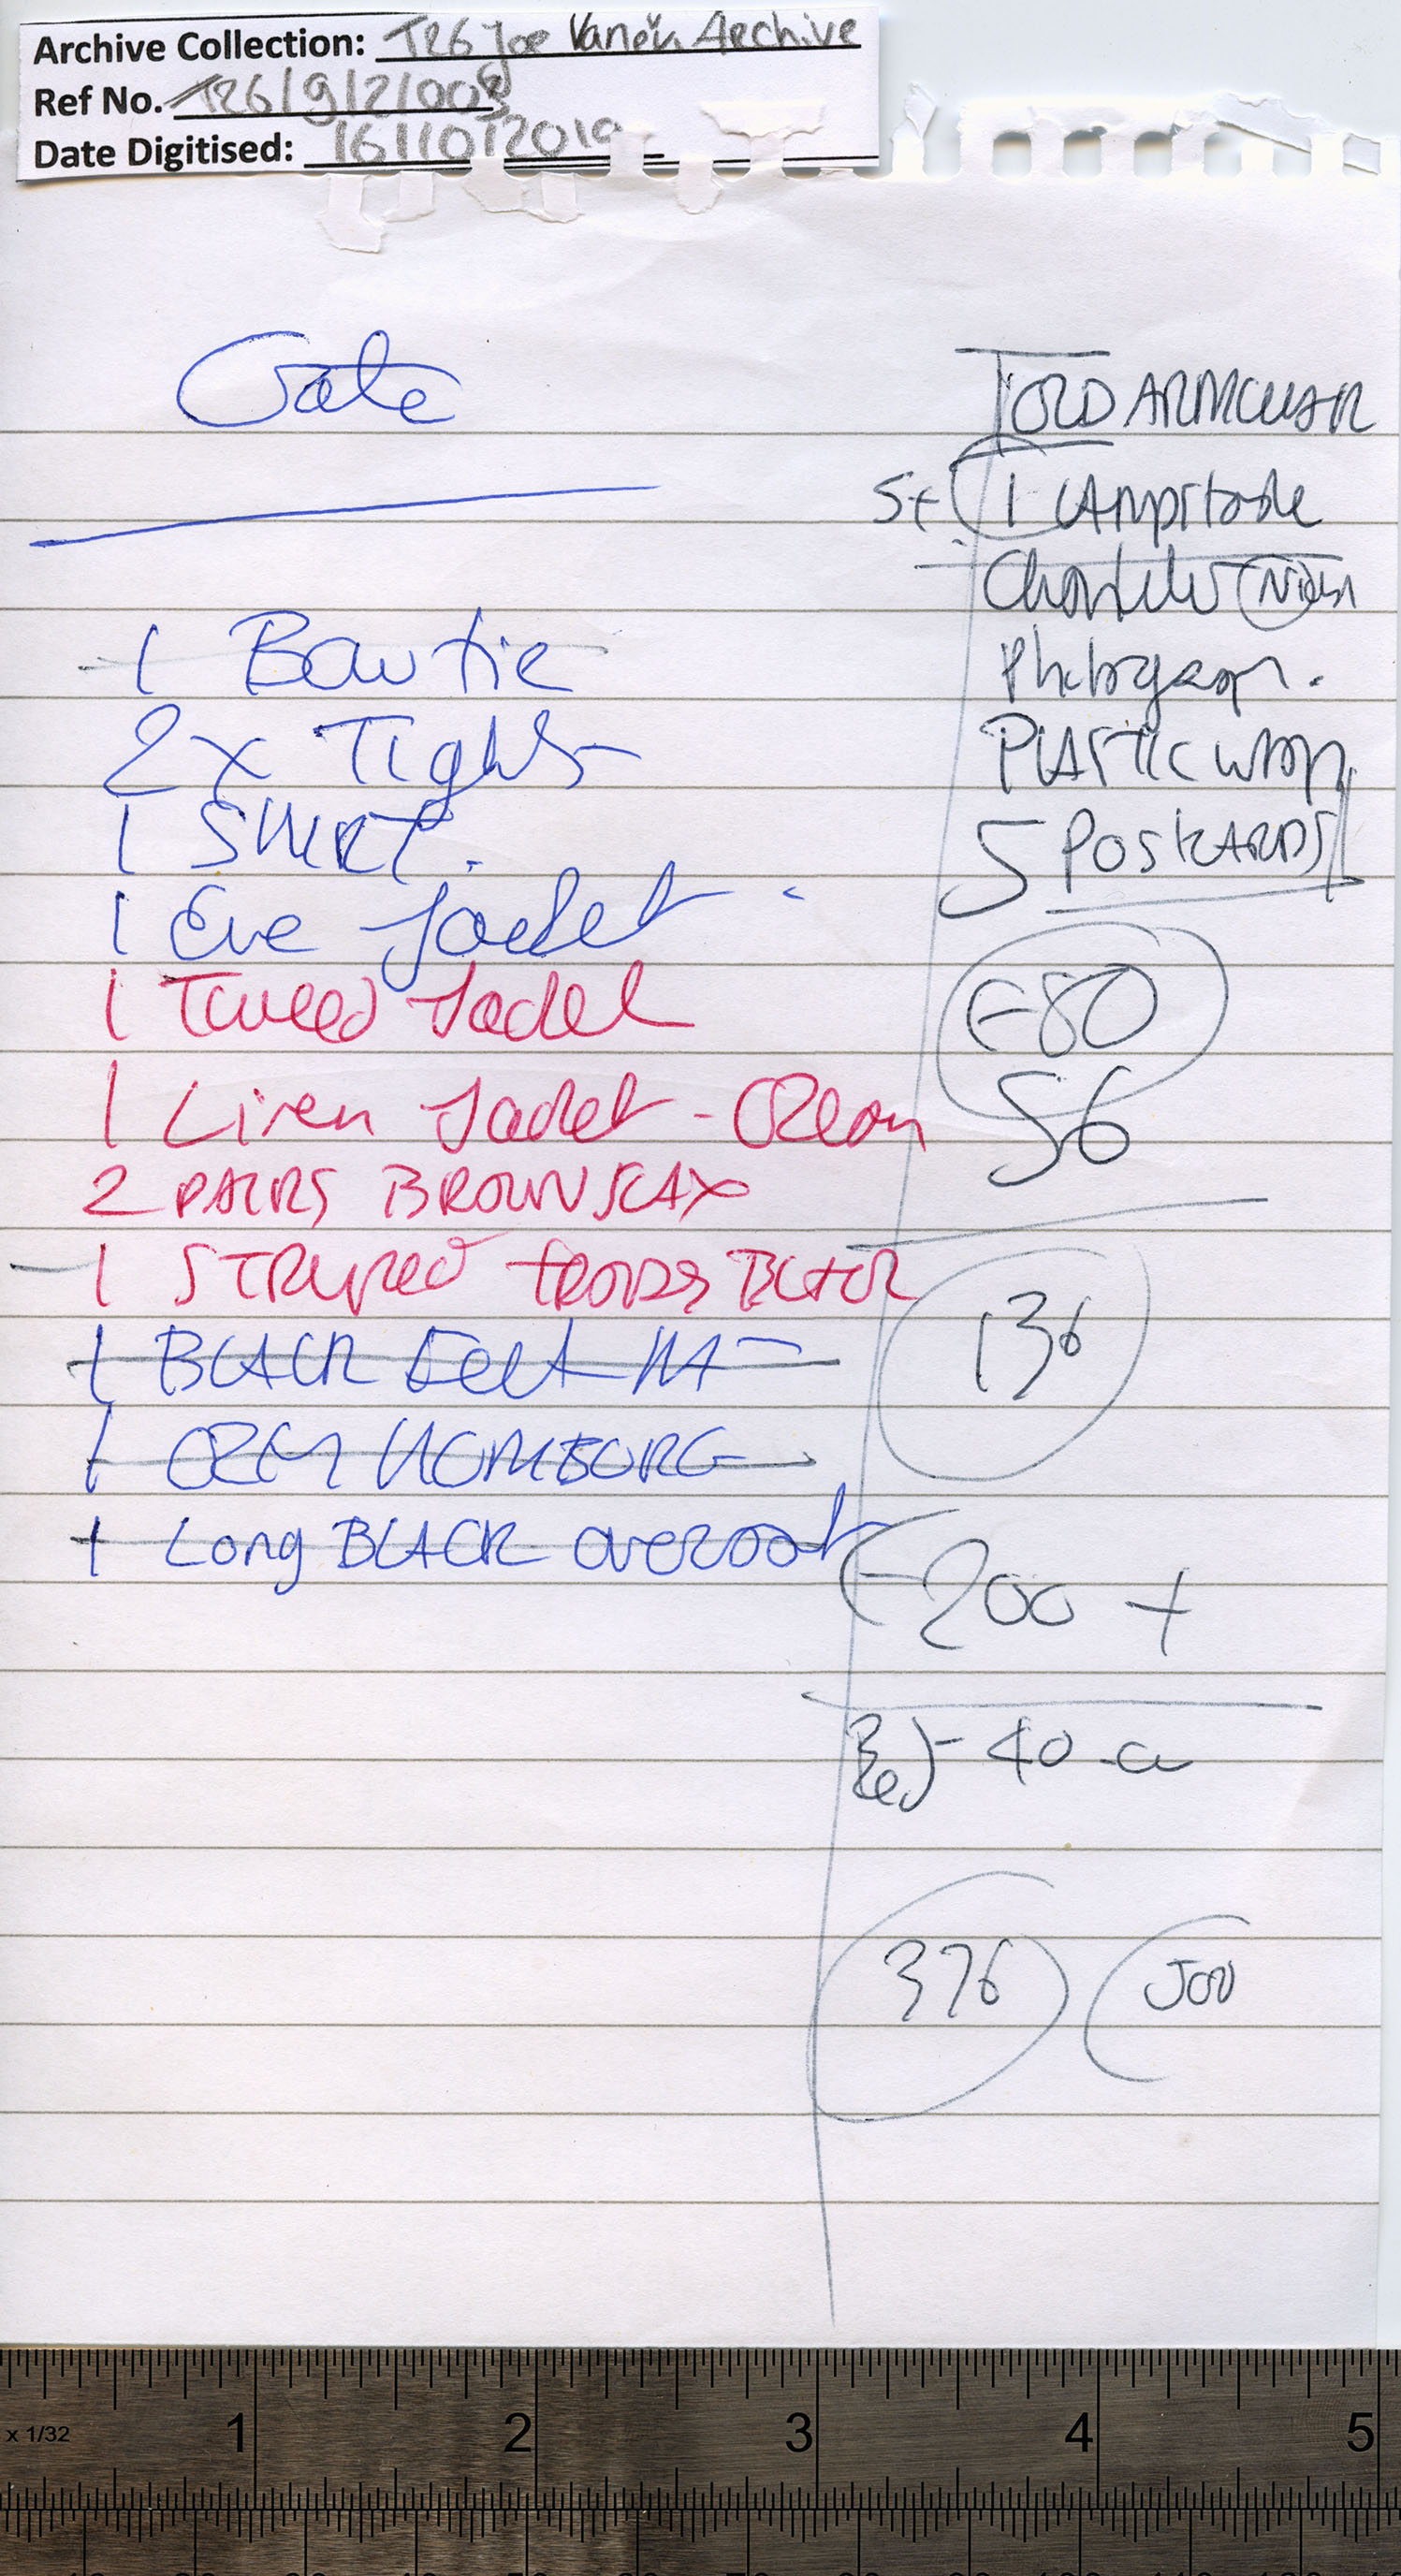 Archive Collection: T26 Joe Vaněk Archive
Ref No. T26/9/2/008
Date Digitised: 16/10/2019
Gate
1 Bow tie
2x Tights
1 SHIRT.
1 Eve Jacket
1 Tweed Jacket
1 Linen Jacket - CREAM
2 PAIRS BROWN SLAX
1 STRIPED TROUS BLACK
1 BLACK Felt HAT
1 GREY HOMBURG
1 Long BLACK overcoat
TOLD ARMCHAIR
5+ 1
PLASTIC WRAP
5 POSTCARDS
€80
56
136
€200 +
40
376